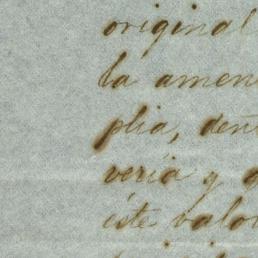 original
la amen
plia, den
veria y q
éste valo